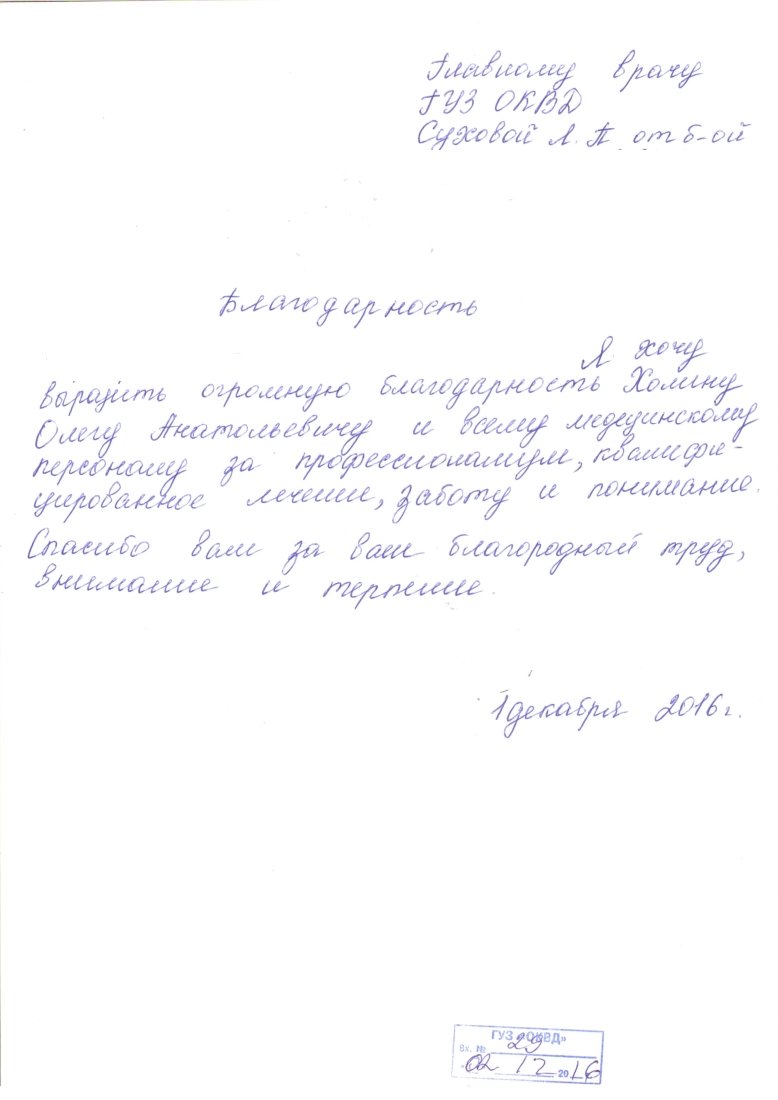 Главному врачу
ГУЗ ОКВД
Суховой Л. П от б-ой
Благодарность
Я хочу
выразить огромную благодарность Холину
Олегу Анатольевичу и всему медецинскому
персоналу за профессионализм, квалифи-
цированное лечение, заботу и понимание.
Спасибо вам за ваш благородный труд,
внимание и терпение.
1 декабря 2016 г.
ГУЗ «ОКВД»
Вх. № 29
02 12 2016